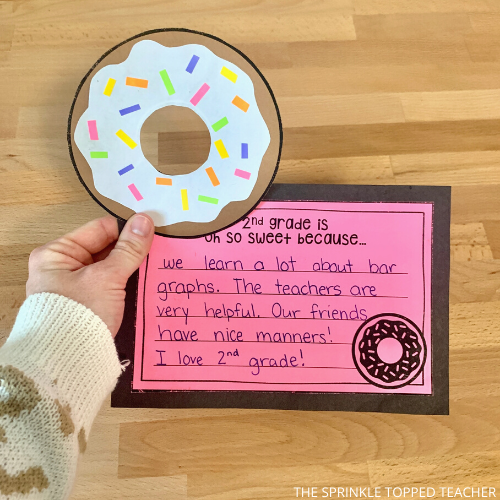 2nd grade is
Oh so sweet because...
we learn a lot about bar
graphs. The teachers are
very helpful. Our friends
have nice manners!
I love 2nd grade!
THE SPRINKLE TOPPED TEACHER